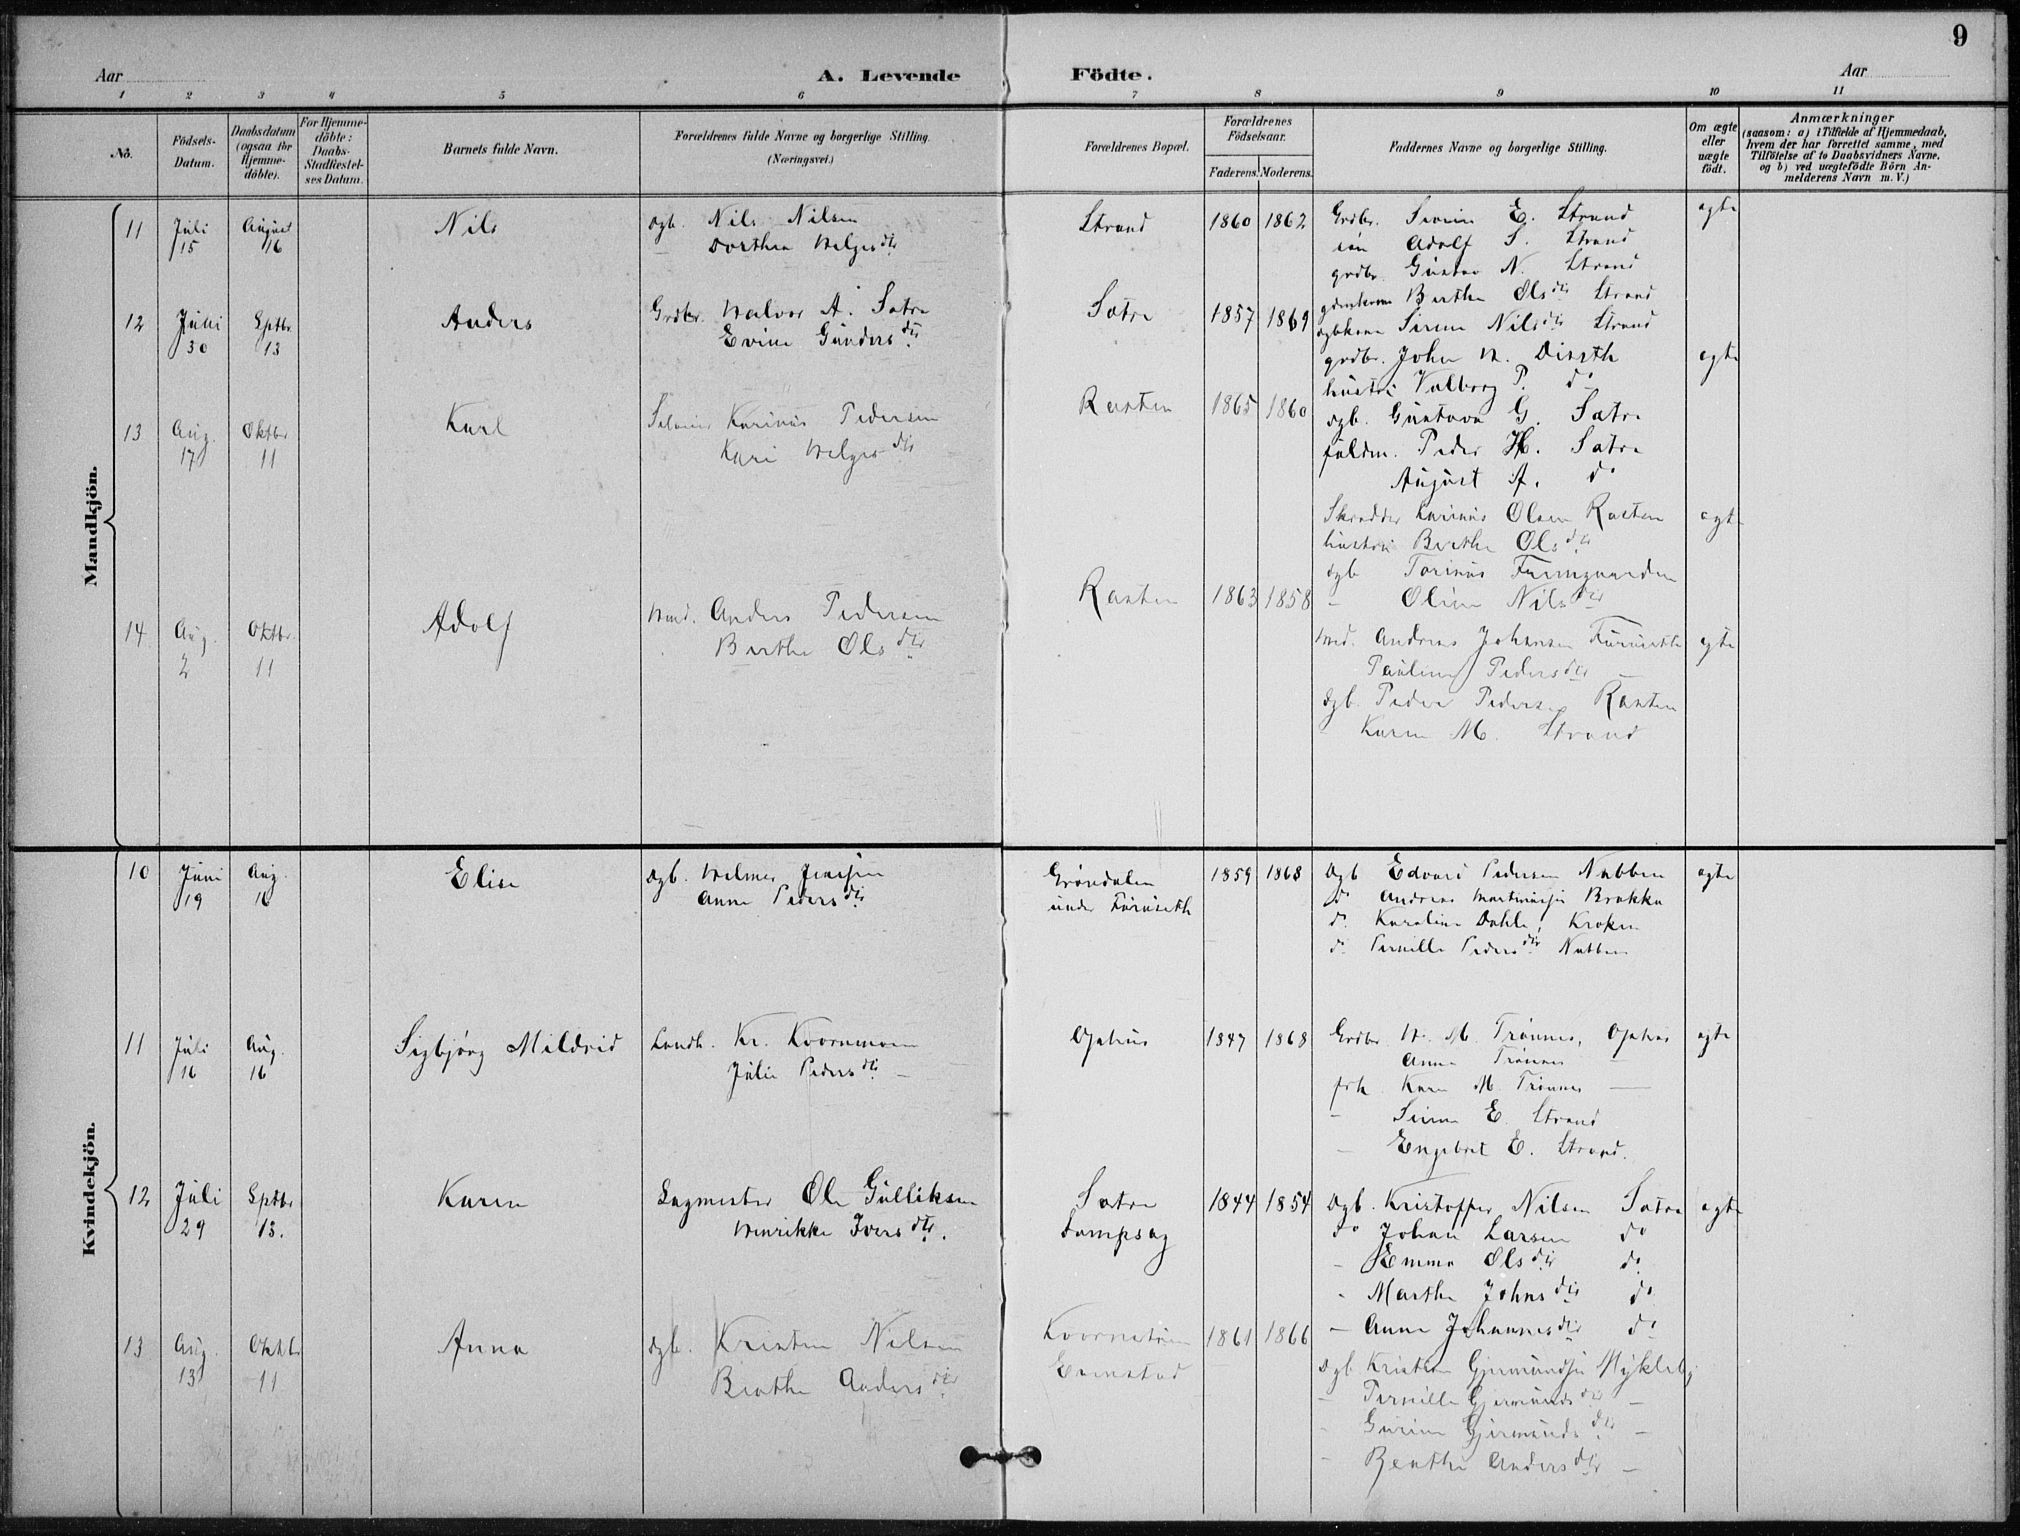 9
Aar
A. Levende Födte.
Aar
1 2 3 4 5 6 7 8 9 10 11
No.
Födsels-Datum.
Daabsdatum (ogsaa for Hjemme-döbte).
For Hjemme-döbte: Daabs-Stadfæstel-ses Datum.
Barnets fulde Navn.
Forældrenes fulde Navne og borgerlige Stilling.
(Næringsvei.)
Forældrenes Bopæl.
Forældrenes Födselsaar.
Faderens. Moderens.
Faddernes Navne og borgerlige Stilling.
Om ægte eller uægte födt.
Anmærkninger
(saasom: a) i Tilfælde af Hjemmedaab,
hvem der har forrettet samme, med
Tilföielse af to Daabsvidners Navne.
og b) ved uægtefödte Börn An-
melderens Navn m. V.)
Mandkjön.
11 Juli 15 August 16 Nils
dgb. Nils Nilsen
Dorthea Helgesdtr
Strand 1860 1862
Grdbr. Simen E. Strand
Adolf S. Strand
grdbr. Gustav N. Strand
Berthe Olsdtr Strand
Nilsdtr Strand
ægte
12 Juli 30 Sptbr. 13 Anders
Grdbr. Halvor A. Satre
Eline Gundersdtr
Satre 1857 1869
grdbr. Johan H. Diseth
hustru Valborg P. do
dgb. Gustava G. Satre
Peder H. Satre
August A. do
ægte
13 Aug. 17 Oktbr 11 Karl
Karinus Pedersen
Kari Helgesdtr
Rasten 1865 1860
Skrædder Karinus Olsen Rasten
hustru Berthe Olsdtr
dgb Torinus
- Oline Nilsdtr
ægte
14 Aug. 2 Oktbr. 11 Adolf
Hmd. Anders Pedersen
Berthe Olsdtr
Rasten 1863 1858
Hmd. Andreas Johansen Furuseth
Pauline Pedersdtr
dgb. Peder Pedersen Rasten
Karen M. Strand
ægte
Kvindekjön.
10 Juni 19 Aug. 16 Elise
dgb. Helmer Jensen
Anne Pedersdtr
Gröndalen
under Furuseth
1859 1868
Dgb Edvard Pedersen Nabben
do Andreas Martinusen Brakka
do Karoline Dahle, Kroken
do Pernille Pedersdtr Nabben
ægte
11 Juli 16 Aug. 16 Sigbjörg Mildrid
Landh. Kr. Kvernmoen
Julie Pedersdtr -
Ophus 1847 1868
Grdbr. H. M. Trönnes, Ophus
Anne Trönnes -
frk. Karen M. Trönnes -
- Simen E. Strand
- Engebret E. Strand.
ægte
12 Juli 29 Sptbr 13. Karen
Sagmester Ole Gulliksen
Henrikke Iversdtr.
Satre
Dampsag
1844 1854
Dgb. Kristoffer Nilsen Satre
do Johan Larsen do
- Emma Olsdtr do
- Marthe Johnsdtr do
- Anne Johannesdtr do
ægte
13 Aug. 13 Oktbr 11 Anna
dgb. Kristen Nilsen
Berthe Andersdtr
Evenstad
1861 1866
Dgb. Kristian Gjermundsen Mykleby
- Pernille Gjermundsdtr -
- Gurine Gjermundsdtr -
- Berthe Andersdtr -